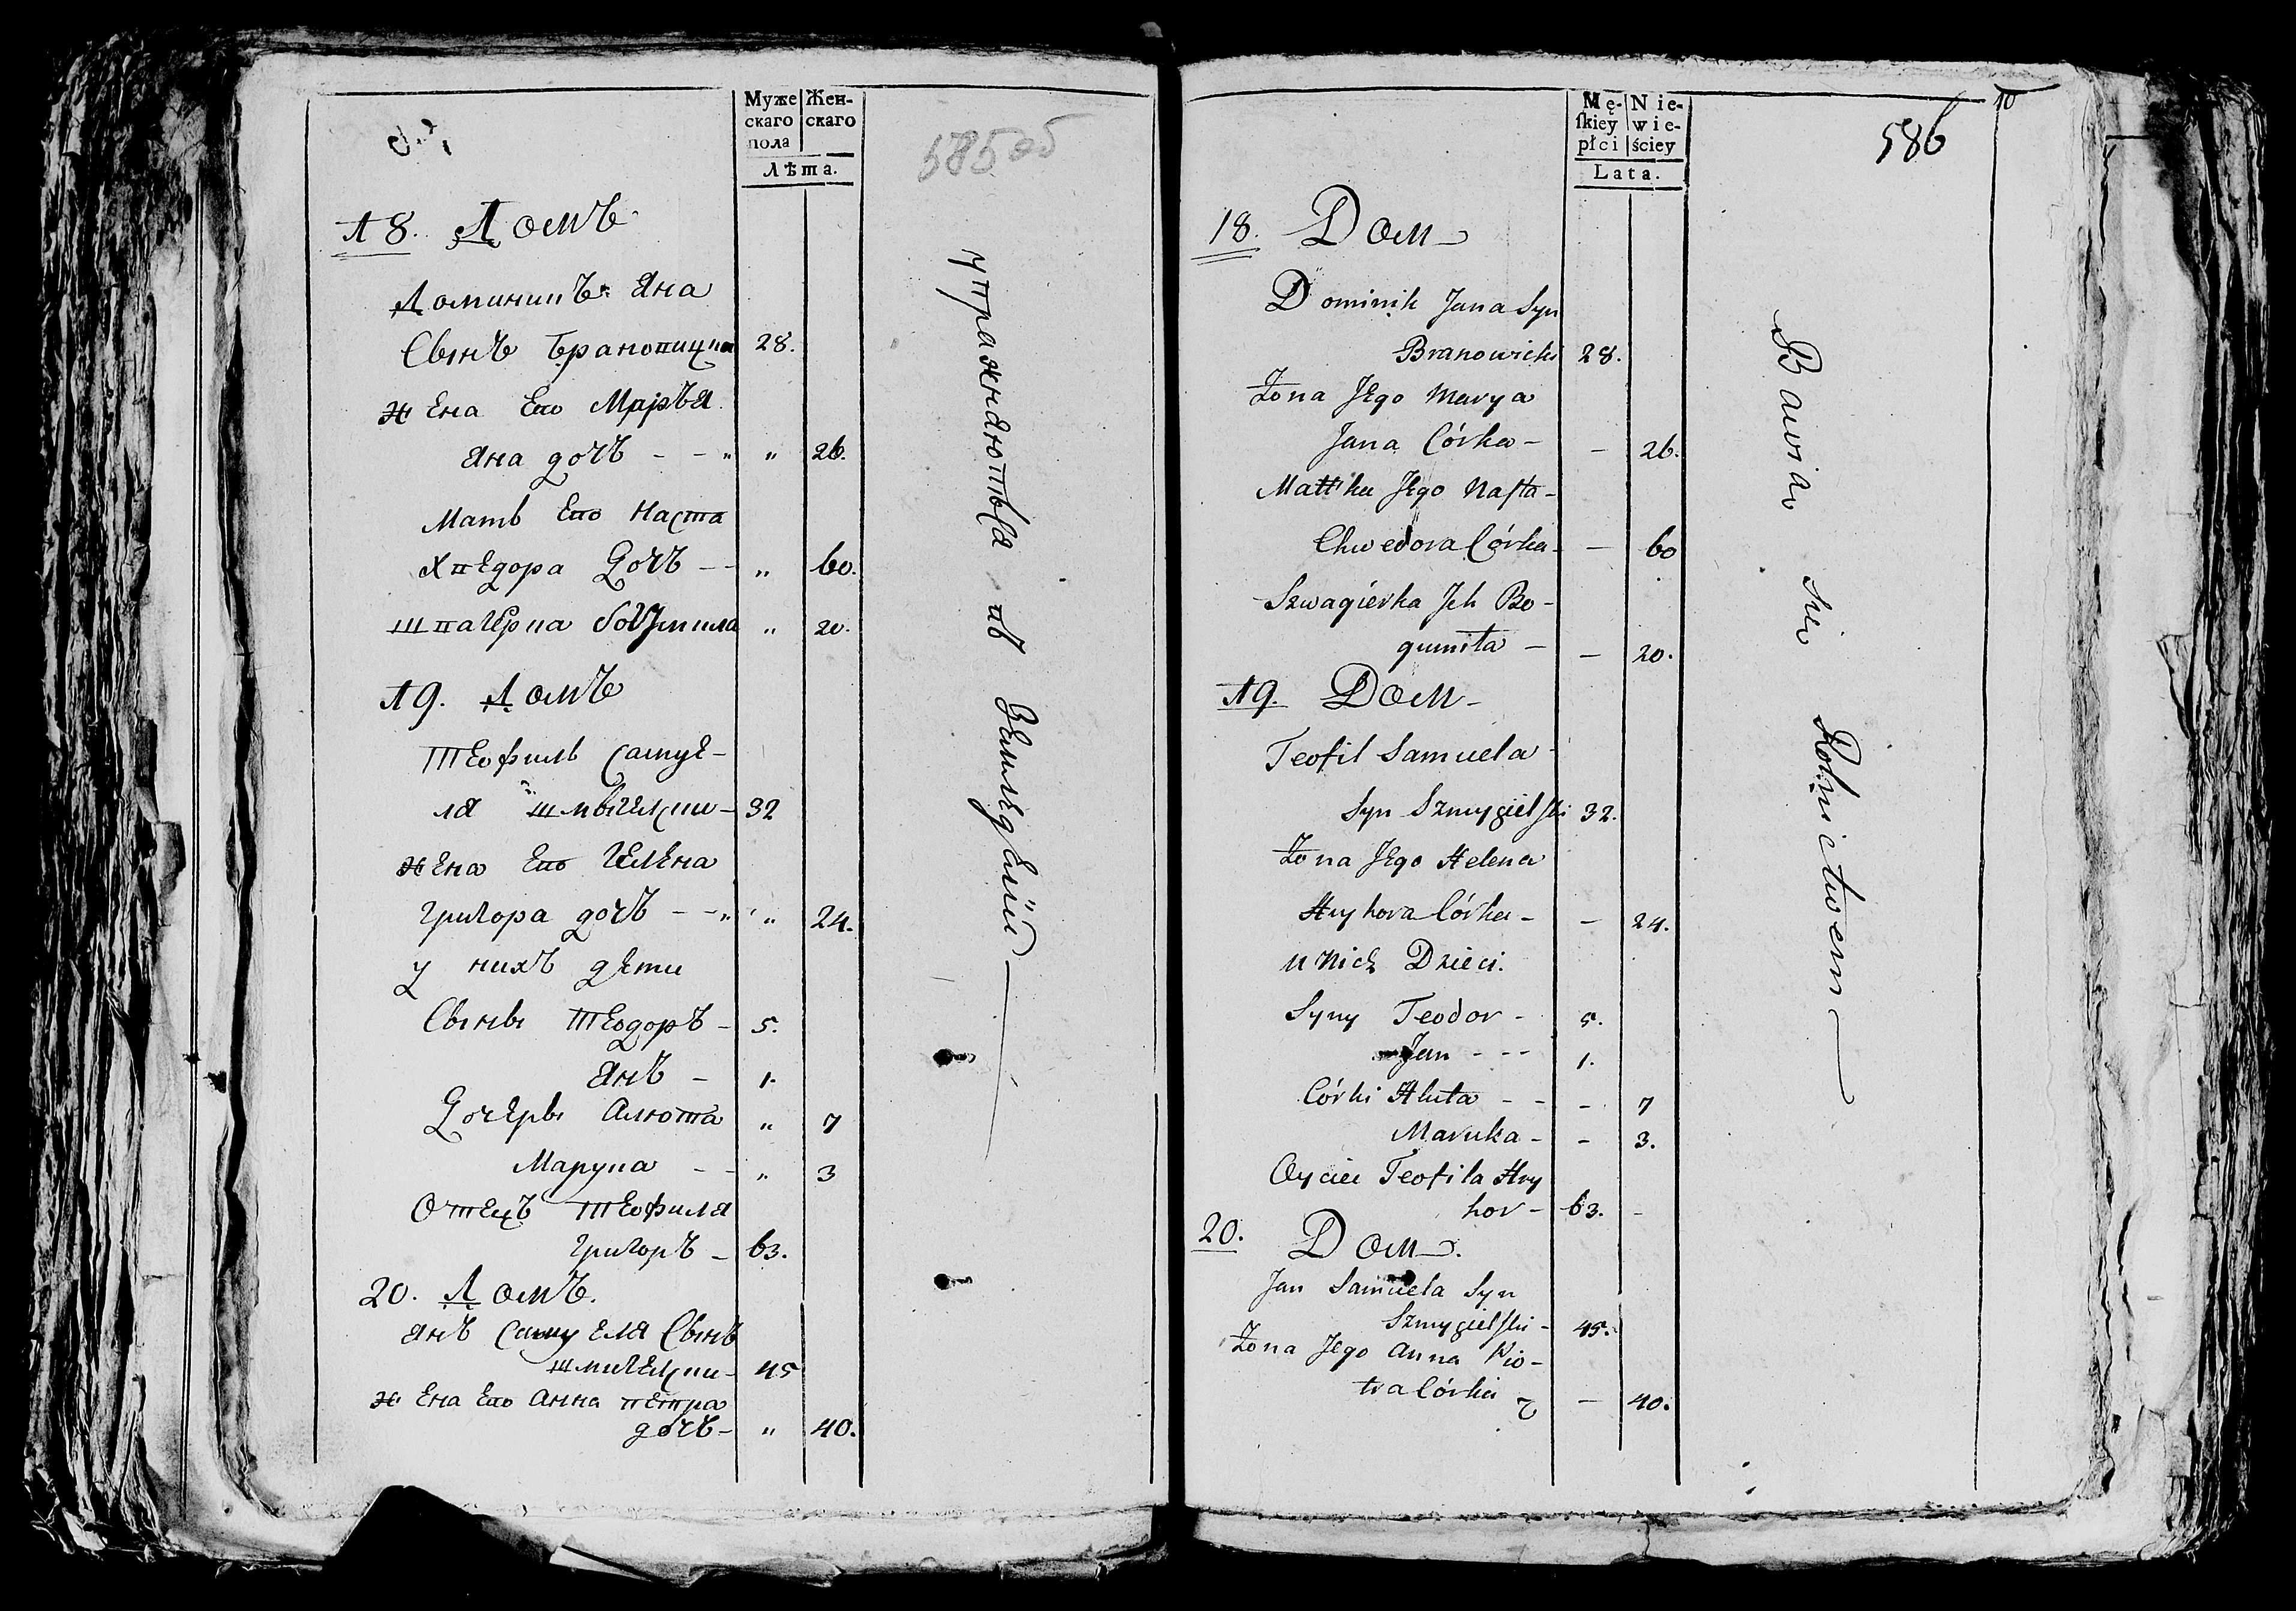 Муже Жен-
скаго скаго
пола
Лѣта.
585 об
18. Домъ
Доминикъ Яна
Сынъ Брановицки 28.
Жена Его Маръя
Яна дочъ - - " " 26.
Мать Его Наста
Хведора Дочъ - - " 60.
Швагерка Богумила " 20.
19. Домъ
Теофиль Самуе-
ля Шмыгелски - 32
Жена Его Гелена
Григора дочъ - - " " 24.
у нихъ дети
Сыны Теодоръ - 5.
Янъ - 1.
Дочеры Алюта " 7
Марука - - " 3
Отецъ Теофиля
Григоръ - 63.
20. Домъ.
Янъ Самуеля Сынъ
Шмигелски - 45
Жена Его Анна Петра
дочъ - " 40.
упражняютьса въ Земледелїи
Mę- Nie-
skiey wie-
płci ściey
Lata.
10
586
18. Dom
Dominik Jana Syn
Branowicki 28.
Żona Jego Marya
Jana Córka - - 26.
Matka Jego Nasta -
Chwedora Córka - - 60
Szwagierka Jch Bo-
gumiła - - 20.
19. Dom -
Teofil Samuela
Syn Szmygielski 32.
Żona Jego Helena
Hryhora Córka - - 24.
u Nich Dzieci.
Syny Teodor - 5.
Jan - - - 1.
Córki Aluta - - - 7
Maruka - - 3.
Oyciec Teofila Hry
hor - 63. -
20. Dom.
Jan Samuela Syn
Szmygielski - 45.
Żona Jego Anna Pio-
tra Córka - 40.
Bawio sie Rolnictwem